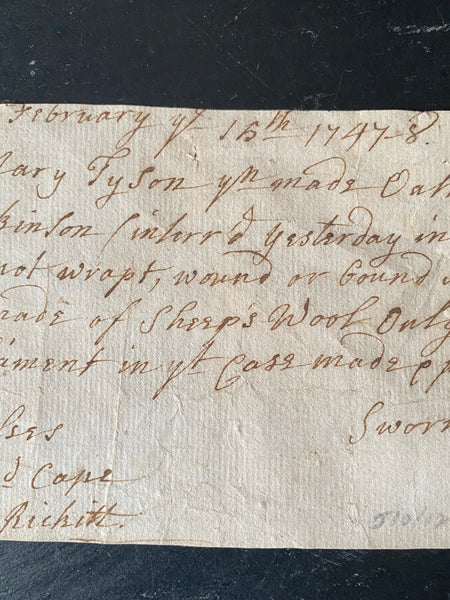 February ye 15th 1747-8.
Mary Tyson yn made Oath
kinson (interr'd yesterday in
not wrapt, wound or bound
made of Sheep's Wool Only
liament in yt Case made & p
Sworn
d Cape
Rickitt.